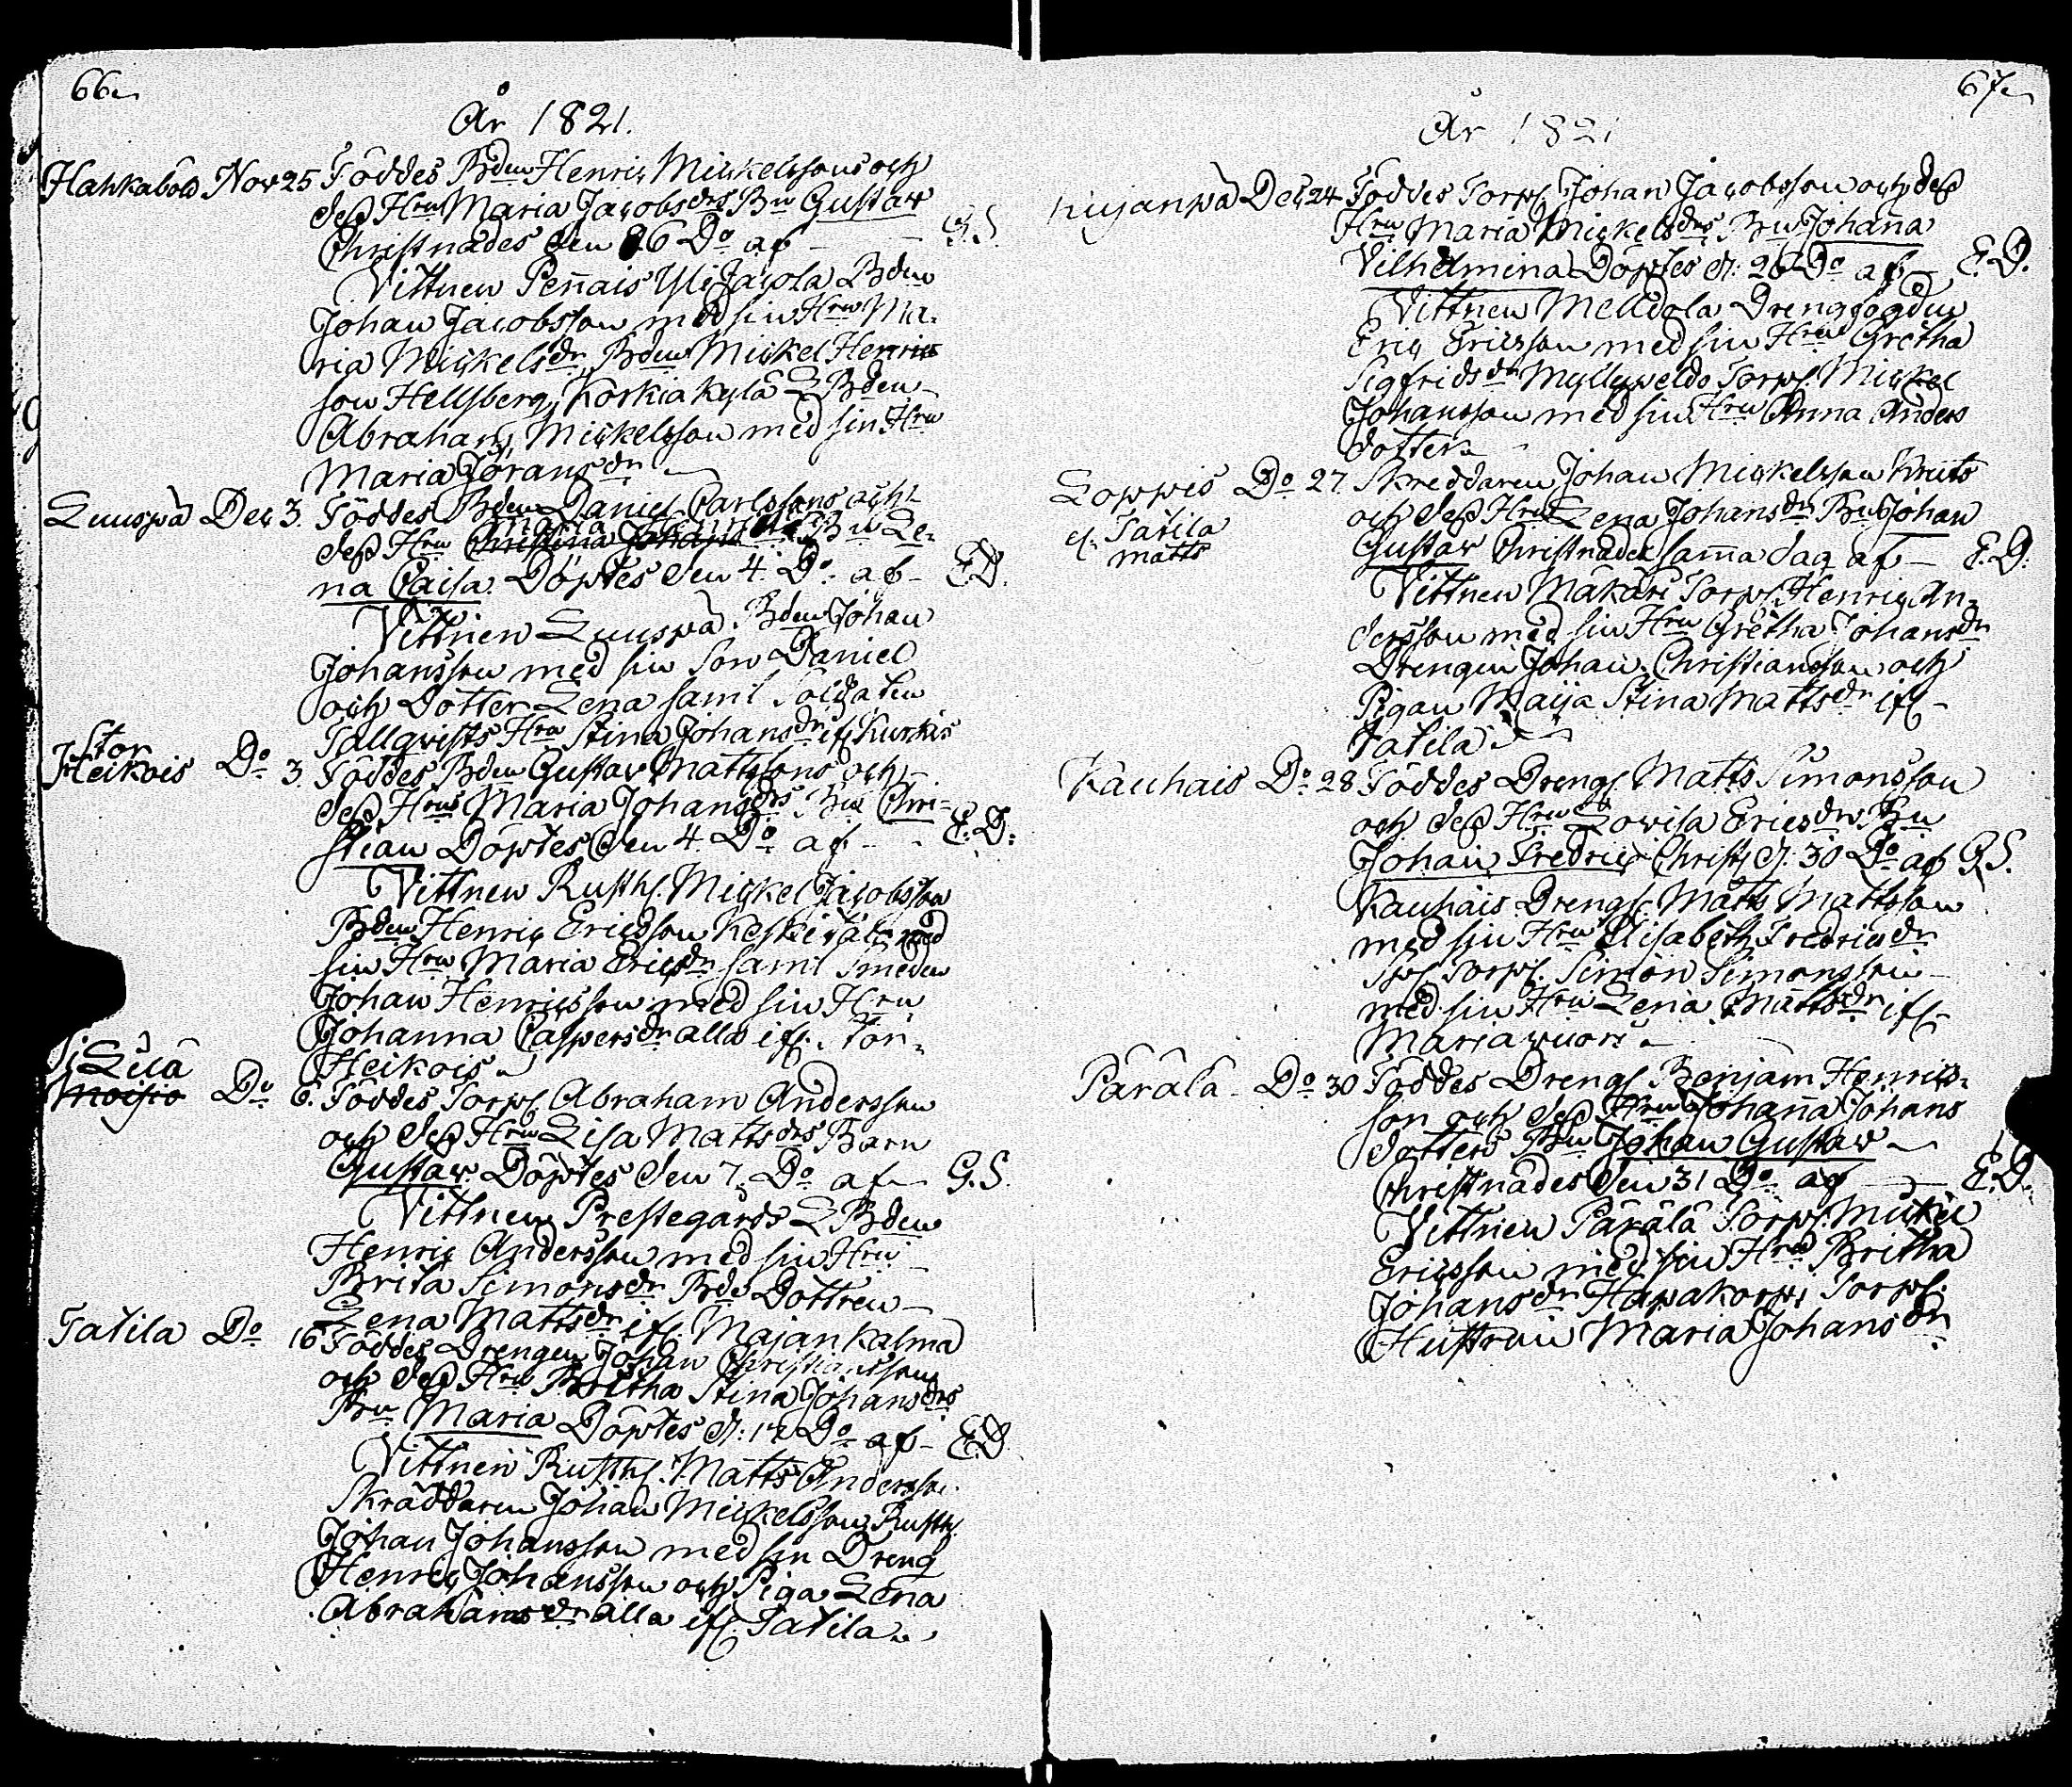 66
År 1821.
Hahkabold Nov 25 Föddes Bden Henric Mickelssons och
dess Hru Maria Jacobsdrs Bn Gustav
Christnades den 26 Do af — G.S.
Vittnen Pennais Yli Jacola Bden
Johan Jacobsson med sin Hru Ma-
ria Mickelsdr, Bden Mickel Henric
son Hellsberg, Korkiakylä L Bden
Abraham Mickelsson med sin Hru
Maria Jöransdr
Luuspä Dec 3. Föddes Bden Daniel Carlssons och
Maria
dess Hru Christina Johans Bn Le-
na Caisa Döptes den 4. Do af — E.D.
Vittnen Luuspä Bden Johan
Johansson med sin Son Daniel
och Dotter Lena samt Soldaten
Tallqvists Hru Stina Johansdr ifr Kurkis
Stor
Heikois Do 3. Föddes Bden Gustav Mattssons och
dess Hrus Maria Johansdrs Bn Chri-
stian Döptes den 4 Do af — E.D:
Vittnen Rusth. Mickel Jacobsson
Bden Henric Ericsson Keskitalo med
sin Hru Maria Ericsdr samt Smeden
Johan Henricsson med sin Hru
Johanna Caspersdr alla ifr. Stor-
Heikois
Lilla
Moisio Do 6. Föddes Torp. Abraham Andersson
och dess Hru Lisa Mattsdrs Barn
Gustav. Döptes den 7. Do af — G.S.
Vittnen Prestegårds L Bden
Henric Andersson med sin Hru
Brita Simonsdr Bde Dottren
Lena Mattsdr ifr. Majankalma
Tatila Do 16 Föddes Drengen Johan Christiansson
och dess Hru Britha Stina Johansdrs
Bn Maria Döptes d: 17 Do af — E.D
Vittnen Rusth. Matts Andersson
Skräddaren Johan Mickelsson, Rusth.
Johan Johansson med sin Dreng
Henric Johansson och Piga Lena
Abrahamsdr alla ifr. Tatila
67
År 1821
Kujanpä Dec 24 Föddes Torp. Johan Jacobsson och dess
Hru Maria Mickelsdrs Bn Johanna
Vilhelmina Döptes d: 26 Do af — E.D.
Vittnen Melldola Drengfogden
Eric Ericsson med sin Hru Gretha
Sigfridsdr Myllypeldo Torp. Mickel
Johansson med sin Hru Anna Anders
dotter
Loppis Do 27. Skreddaren Johan Mickelsson Kruts
el. Tatila
matts
och dess Hru Lena Johansdr Bn Johan
Gustav Christnades samma dag af — E.D.
Vittnen Mäkäri Torp. Henric An-
dersson med sin Hru Gretha Johansdr
Drengen Johan Christiansson och
Pigan Maija Stina Mattsdr ifr
Tatila
Kauhais Do 28 Föddes Drengs Matts Simonsson
och dess Hru Lovisa Ericsdrs Bn
Johan Fredric Christs d: 30 Do af G.S.
Kauhais Drengs Matts Mattsson
med sin Hru Elisabeth Fredricsdr
Torp. Simon Simonsson
med sin Hru Lena Mattsdr ifr
Mariavuori
Pärälä Do 30 Föddes Drengs Benjam Henrics-
son och dess Hru Johanna Johans
dotters Bn Johan Gustav
Christnades den 31 Do af — E.D.
Vittnen Pärälä Torp. Mickel
Ericsson med sin Hru Britha
Johansdr Hapakorpi Torp.
Hustrun Maria Johansdr